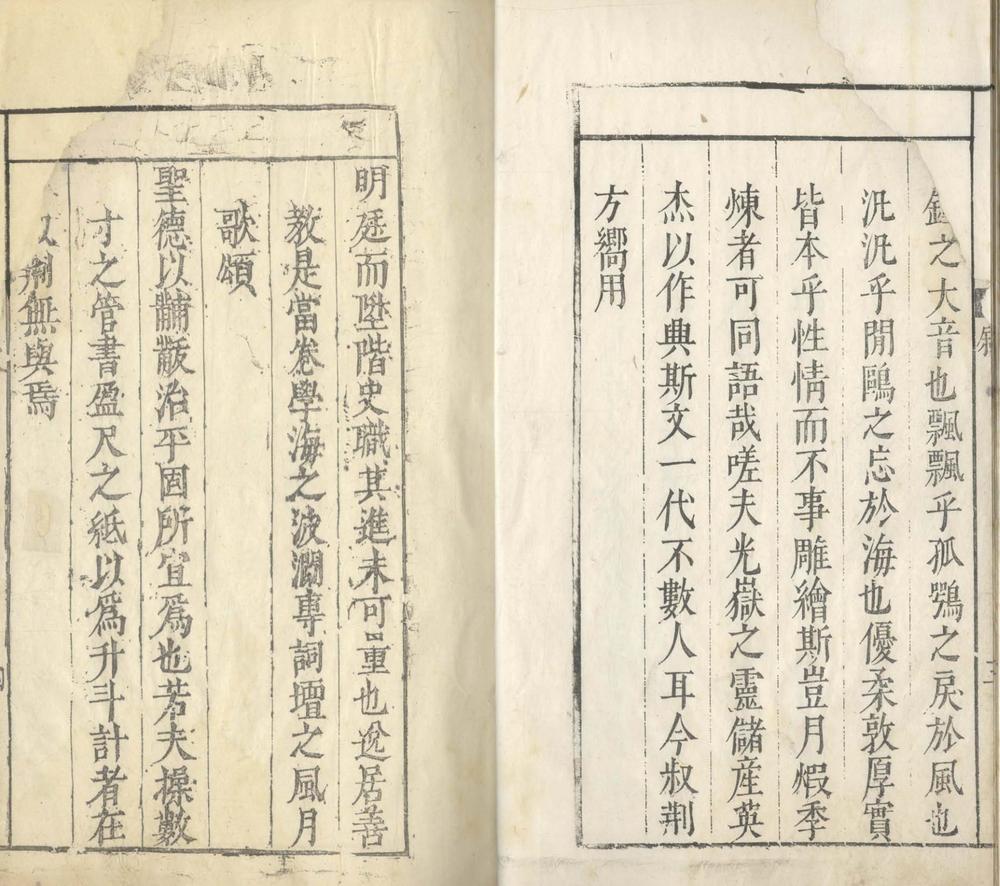 之大音也飄飄乎孤鶚之戾於風也
汎汎乎閒鷗之忘於海也優柔敦厚實
皆本乎性情而不事雕繪斯豈月煆季
煉者可同語哉嗟夫光嶽之靈儲産英
杰以作典斯文一代不數人耳今叔荆
方嚮用
明廷而陞階史職其進未可量也逆居善
教是當卷學海之波瀾專詞壇之風月
歌頌
聖德以黼黻治平固所宜爲也若夫操數
寸之管書盈尺之紙以爲升斗計者在
荆無與焉